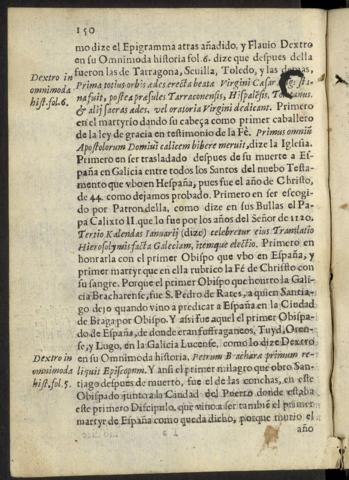 150
mo dize el Epigramma atras añadido, y Flauio Dextro
en su Omnimoda historia fol. 6. dize que despues della
fueron las de Tarragona, Seuilla, Toledo, y las demas,
Dextro in
omnimoda
hist. fol. 6.
Prima totius orbis ædes erecta beatæ Virgini Cæsar
na fuit, postea præsules Tarraconensis, Hispalēsis, Toletanus.
& alij sacras ædes, vel oratoria Virgini dedicant. Primero
en el martyrio dando su cabeça como primer cauallero
de la ley de gracia en testimonio de la Fè. Primus omniū
Apostolorum Domini calicem bibere meruit, dize la Iglesia.
Primero en ser trasladado despues de su muerte a Es-
paña en Galicia entre todos los Santos del nuebo Testa-
mento que vbo en Hespaña, pues fue el año de Christo,
de 44. como dejamos probado. Primero en ser escogi-
do por Patron della, como dize en sus Bullas el Pa-
pa Calixto II. que lo fue por los años del Señor de 1120.
Tertio Kalendas Ianuarij (dize) celebretur eius Translatio
Hierosolymis facta Galeciam, itemque electio. Primero en
honrarla con el primer Obispo que vbo en España, y
primer martyr que en ella rubrico la Fè de Christo con
su sangre. Porque el primer Obispo que honrro la Gali-
cia Bracharense, fue S. Pedro de Rates, a quien Santia-
go dejo quando vino a predicar a España en la Ciudad
de Braga por Obispo. Y assi fue aquel el primer Obispa-
do de España, de donde eran suffraganeos, Tuyd, Oren-
se, y Lugo, en la Galicia Lucense, como lo dize Dextro
Dextro in
omnimoda
hist. fol. 5.
en su Omnimoda historia, Petrum Bracharæ primum re-
liquit Episcopum. Y ansi el primer milagro que obro San-
tiago despues de muerto, fue el de las conchas, en este
Obispado junto a la Ciudad del Puerto donde estaba
este primero Discipulo, que vino a ser tambiē el primer
martyr de España como queda dicho, porque murio el
año